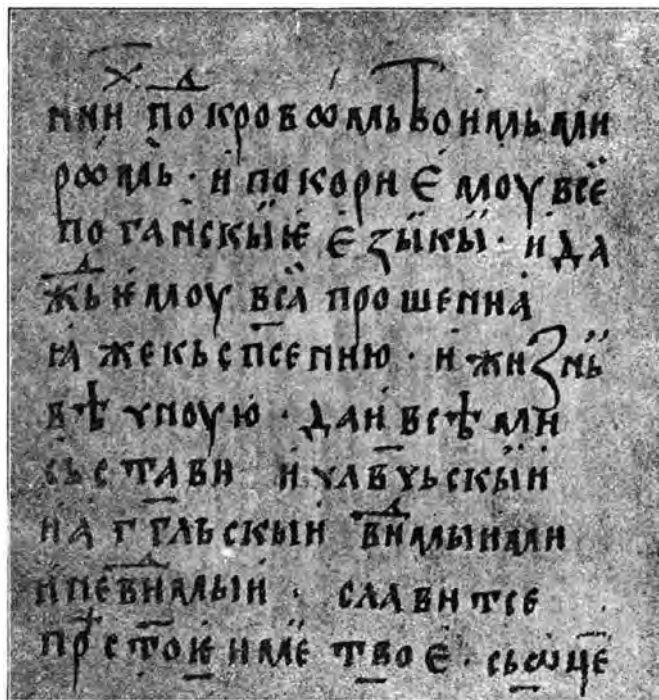 поⷣкровѡмь твоимь ми
рѡмь · и покори ємоу все
поганскыѥ єзыкы · и да
жⷣь ѥмоу вса прошениꙗ
ꙗже кь сп҃сению · и жизнь
вѣчноую · да и всѣми
сьстави и чл҃вчьскыи
и агг҃льскыи виⷣмыими
и невиⷣмыи · славитсе
прⷭ҇тоѥ име тво҃є · сьѡц҃е